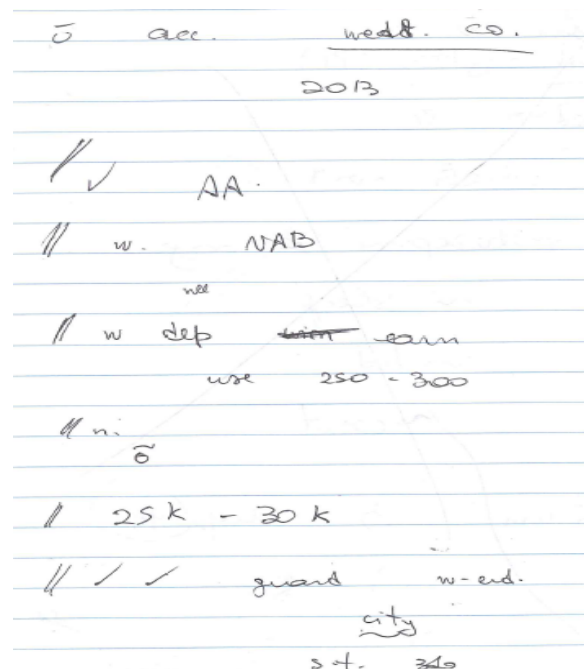 ō acc. wedd. co.
2013
// ✓ AA.
// w. NAB
// w dep earn
use 250 - 300
// n.
õ
// 25k - 30k
// ✓ ✓ guard w-end.
city
s.t.